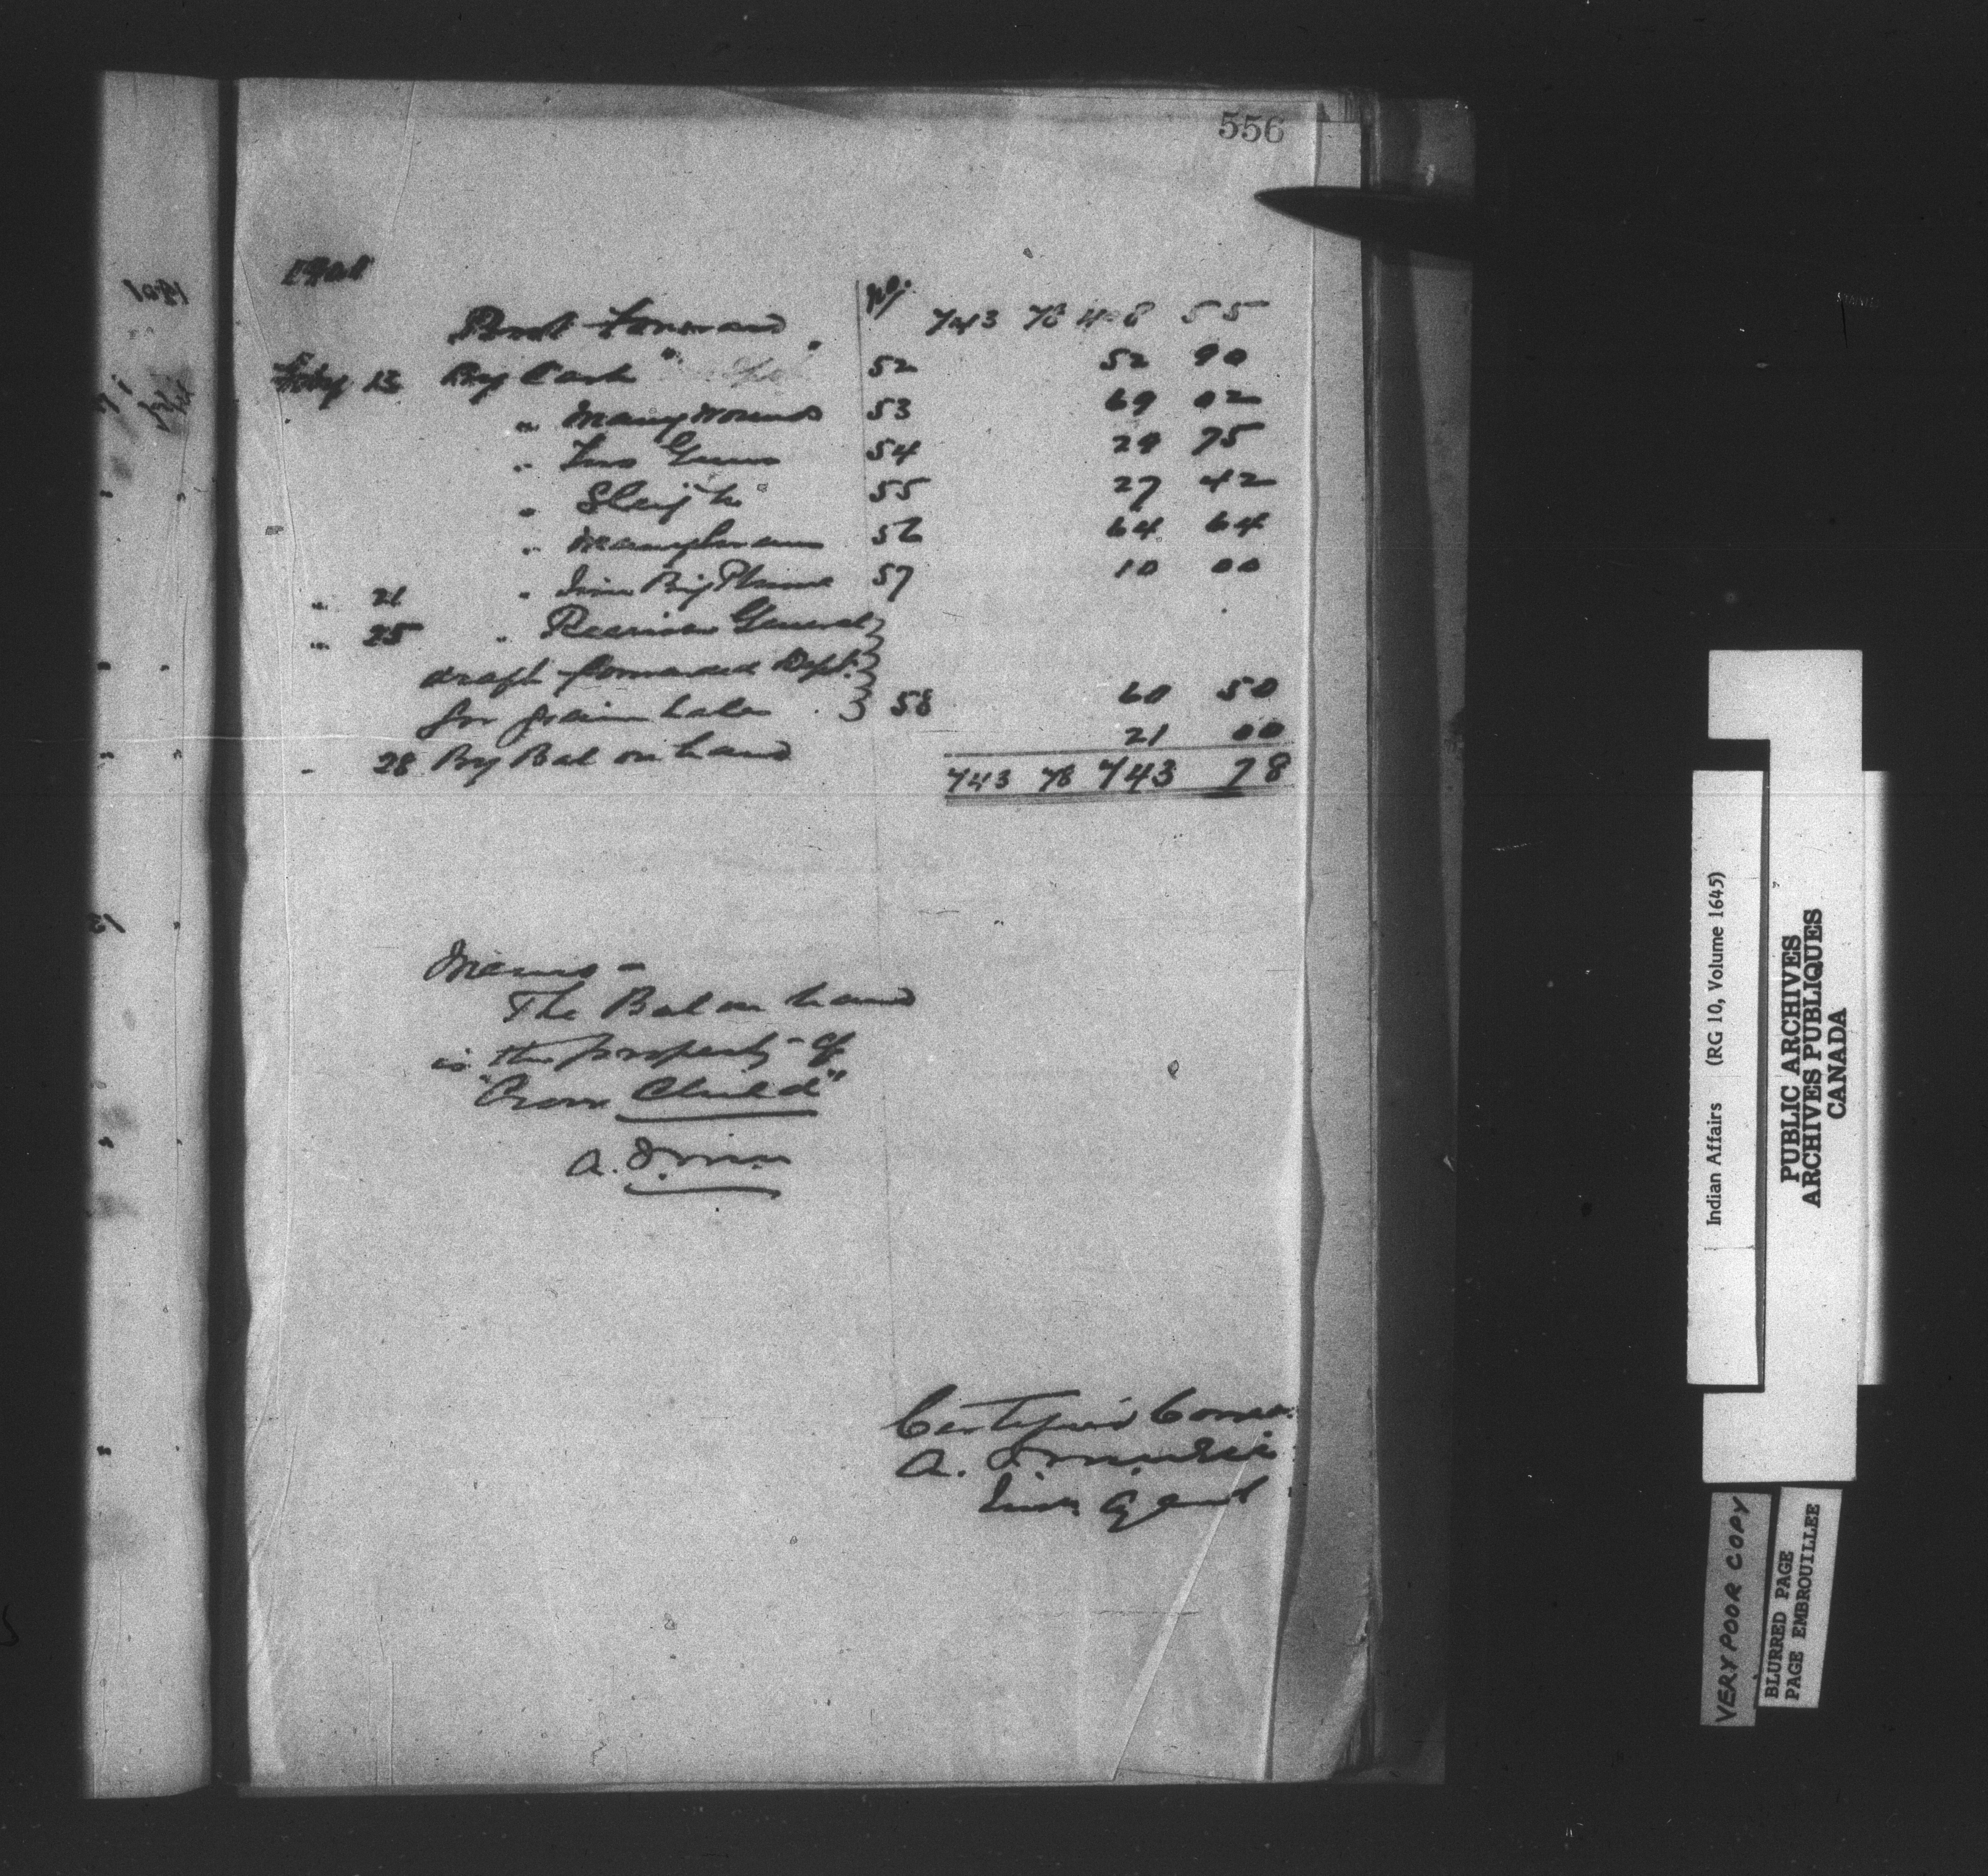 556
No.
Brot Forward 743 78 408 55
Feby 13 By Cash 52 52 90
" Many Wounds 53 69 02
" Two Guns 54 29 75
" Sleigh 55 27 42
" Many 56 64 64
" 21 " Big Plume 57 10 00
" 25 " Receiver General
draft forwarded Dept.
for grain 58 60 50
" 28 By Bal on hand 21 00
743 78 743 78
Memo -
The Bal on hand
is the property of
"Crow Child"
A.
Certified Correct
A.
Ind. Agent
Indian Affairs (RG 10, Volume 1645)
PUBLIC ARCHIVES
ARCHIVES PUBLIQUES
CANADA
VERY POOR COPY
BLURRED PAGE
PAGE EMBROUILLEE